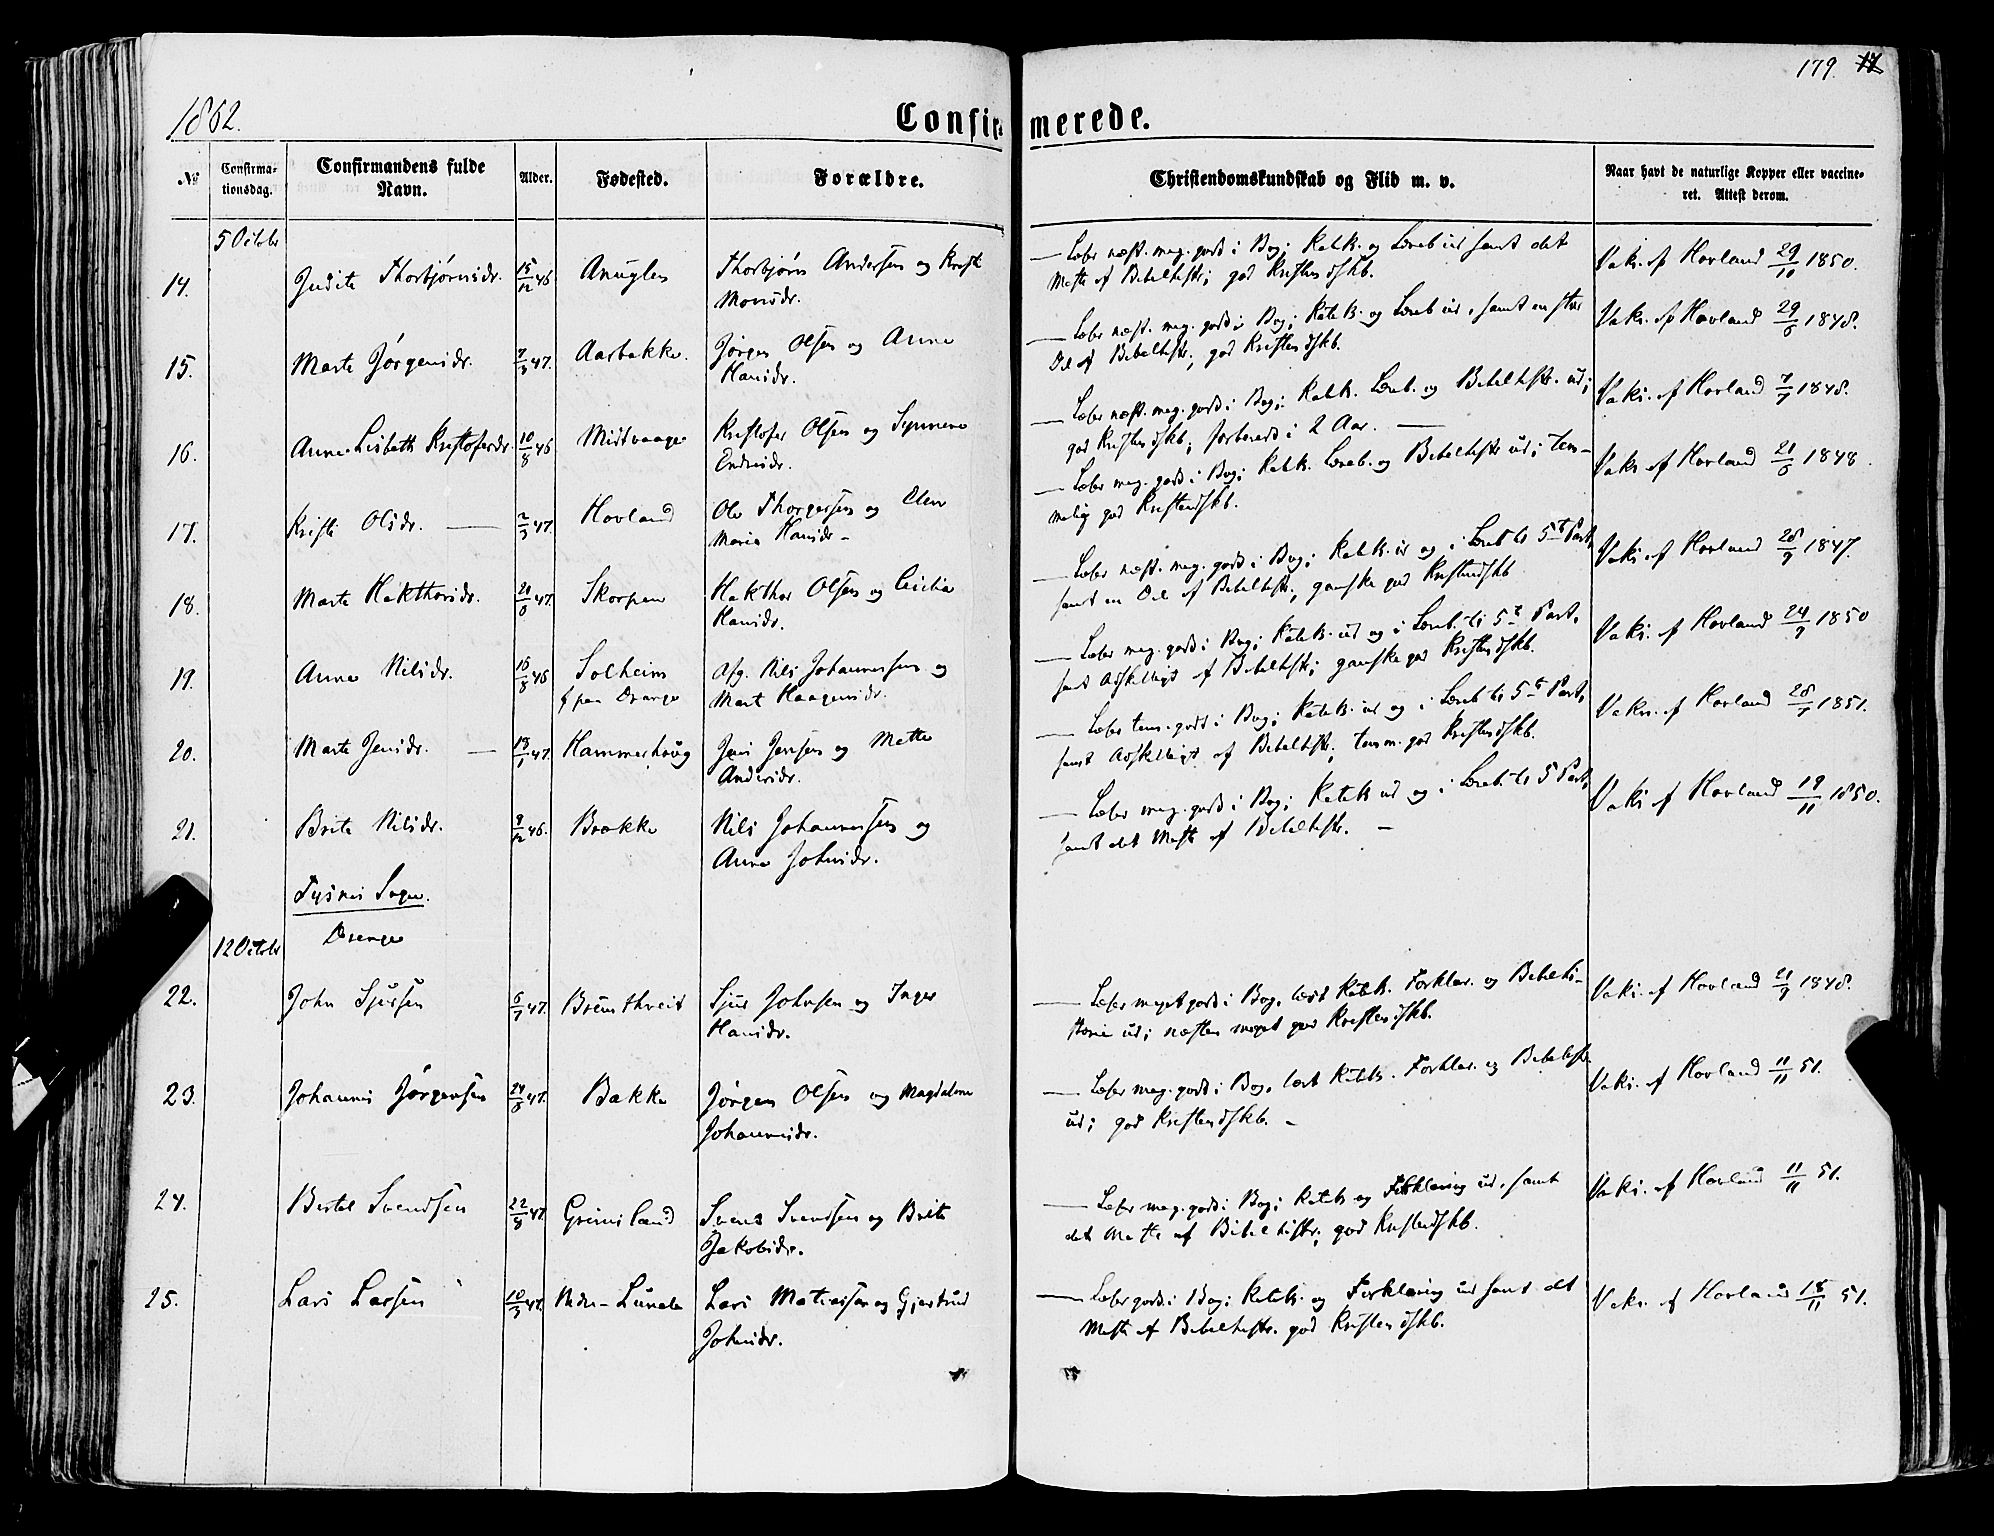 179.
1862.
Confirmerede.
№
Confirma-
tionsdag.
Confirmandens fulde
Navn.
Alder.
Fødested.
Forældre.
Christendomskundskab og Flid m. v.
Naar havt de naturlige Kopper eller vaccine-
ret. Attest derom.
5 Octobr
14. Judite Thorbjørnsdr. 15/12 46 Anuglen Thorbjørn Andersen og Kristi
Monsdr.
— Læser næst. meg. godt i Bog; Katek. og Læreb ud samt det
Meste af Bibelhistr; god Kristendskb.
Vaks. af Hovland 29/11 1850.
15. Marte Jørgensdr. 7/3 47. Aarbakke. Jørgen Olsen og Anne
Hansdr.
— Læser næst. meg. godt i Bog; Katek. og Læreb ud, samt en stor
Del af Bibelhistr; god Kristendskb.
Vaks. af Hovland 29/6 1848.
16. Anne Lisbeth Kristofersdr. 10/8 46 Midtvaage Kristofer Olsen og Synneve
Endresdr.
— Læser næst. meg. godt i Bog; Katek. Læreb. og Bibelhistr. ud;
god Kristendskb; forberedt i 2 Aar. —
Vaks. af Hovland 7/7 1848.
17. Kristi Olsdr. — 2/3 47. Hovland Ole Thorgersen og Elen
Maria Hansdr –
— Læser meg. godt i Bog; Katek. Læreb. og Bibelhistr ud; tem-
melig god Kristendskb.
Vaks af Hovland 21/6 1848.
18. Marte Hakthorsdr. 21/6 47. Skorpen Hakthor Olsen og Cicilia
Hansdr.
— Læser næst. meg. godt i Bog; Katek. ud og i Læreb til 5te Part,
samt en Del af Bibelhistr; ganske god Kristendskb
Vaks af Hovland 28/9 1847.
19. Anne Nilsdr. 16/8 46 Solheim
Afg. Nils Johannessen og
Marte Haagensdr.
— Læser meg. godt i Bog; Katek. ud og i Læreb. til 5te Part,
samt Adskilligt af Bibelhistr; ganske god Kristendskb.
Vaks. af Hovland 24/9 1850
20. Marte Jensdr. — 19/1 47. Hammerhoug Jens Jensen og Mette
Andersdr.
— Læser tem. godt i Bog; Katek. ud og i Læreb til 5te Part,
samt Adskilligt af Bibelhistr; temm. god Kristendskb.
Vaks. af Hovland 28/7 1851.
21. Brite Nilsdr. 9/12 46. Brække Nils Johannessen og
Anne Johnsdr.
— Læser meg. godt i Bog; Katek ud og i Læreb. til 5 Part,
samt det Meste af Bibelhistr. –
Vaks af Hovland 19/11 1850.
Tysnes Sogn.
12 Octobr Drenge
22. John Sjursen 6/7 47. Brunthveit Sjur Johnsen og Inger
Hansdr.
— Læser meget godt i Bog, lært Katek. Forklar. og Bibelhi-
storie ud; næsten meget god Kristendskb.
Vaks. af Hovland 21/9 1848.
23. Johannes Jørgensen 24/8 47. Bakke Jørgen Olsen og Magdalene
Johannesdr.
— Læser meg. godt i Bog, lært Katek. Forklar. og Bibelhistr.
ud; god Kristendskb. –
Vaks. af Hovland 11/11 51.
24. Bertel Svendsen 22/8 47 Grimsland Svend Svendsen og Brite
Jakobsdr.
— Læser meg. godt i Bog; Katek og Forklaring ud, samt
det Meste af Bibelhistr; god Kristendskb.
Vaks. af Hovland 11/11 51.
25. Lars Larsen 10/3 47. Nedre-Lunde Lars Matiassen og Gjertrud
Johnsdr.
— Læser godt i Bog; Katek. og Forklaring ud samt det
Meste af Bibelhistr. god Kristendskb.
Vaks. af Hovland 18/11 51.